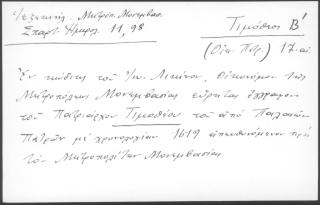 Τιμόθεος Β'
Σπαρτ. Ημερολ. 11, 98
(Οικ. Πατρ.) 17. αι.
Ἐν κώδικι τοῦ Ἰω. Λεκίνου, Οἰκονόμου τῆς
Μητροπόλεως Μονεμβασίας εὕρηται ἔγγραφον
τοῦ Πατριάρχου Τιμοθέου τοῦ ἀπὸ Παλαιῶν
Πατρῶν μὲ χρονολογίαν 1612 ἀπευθυνόμενον πρὸς
τὸν Μητροπολίτην Μονεμβασίας